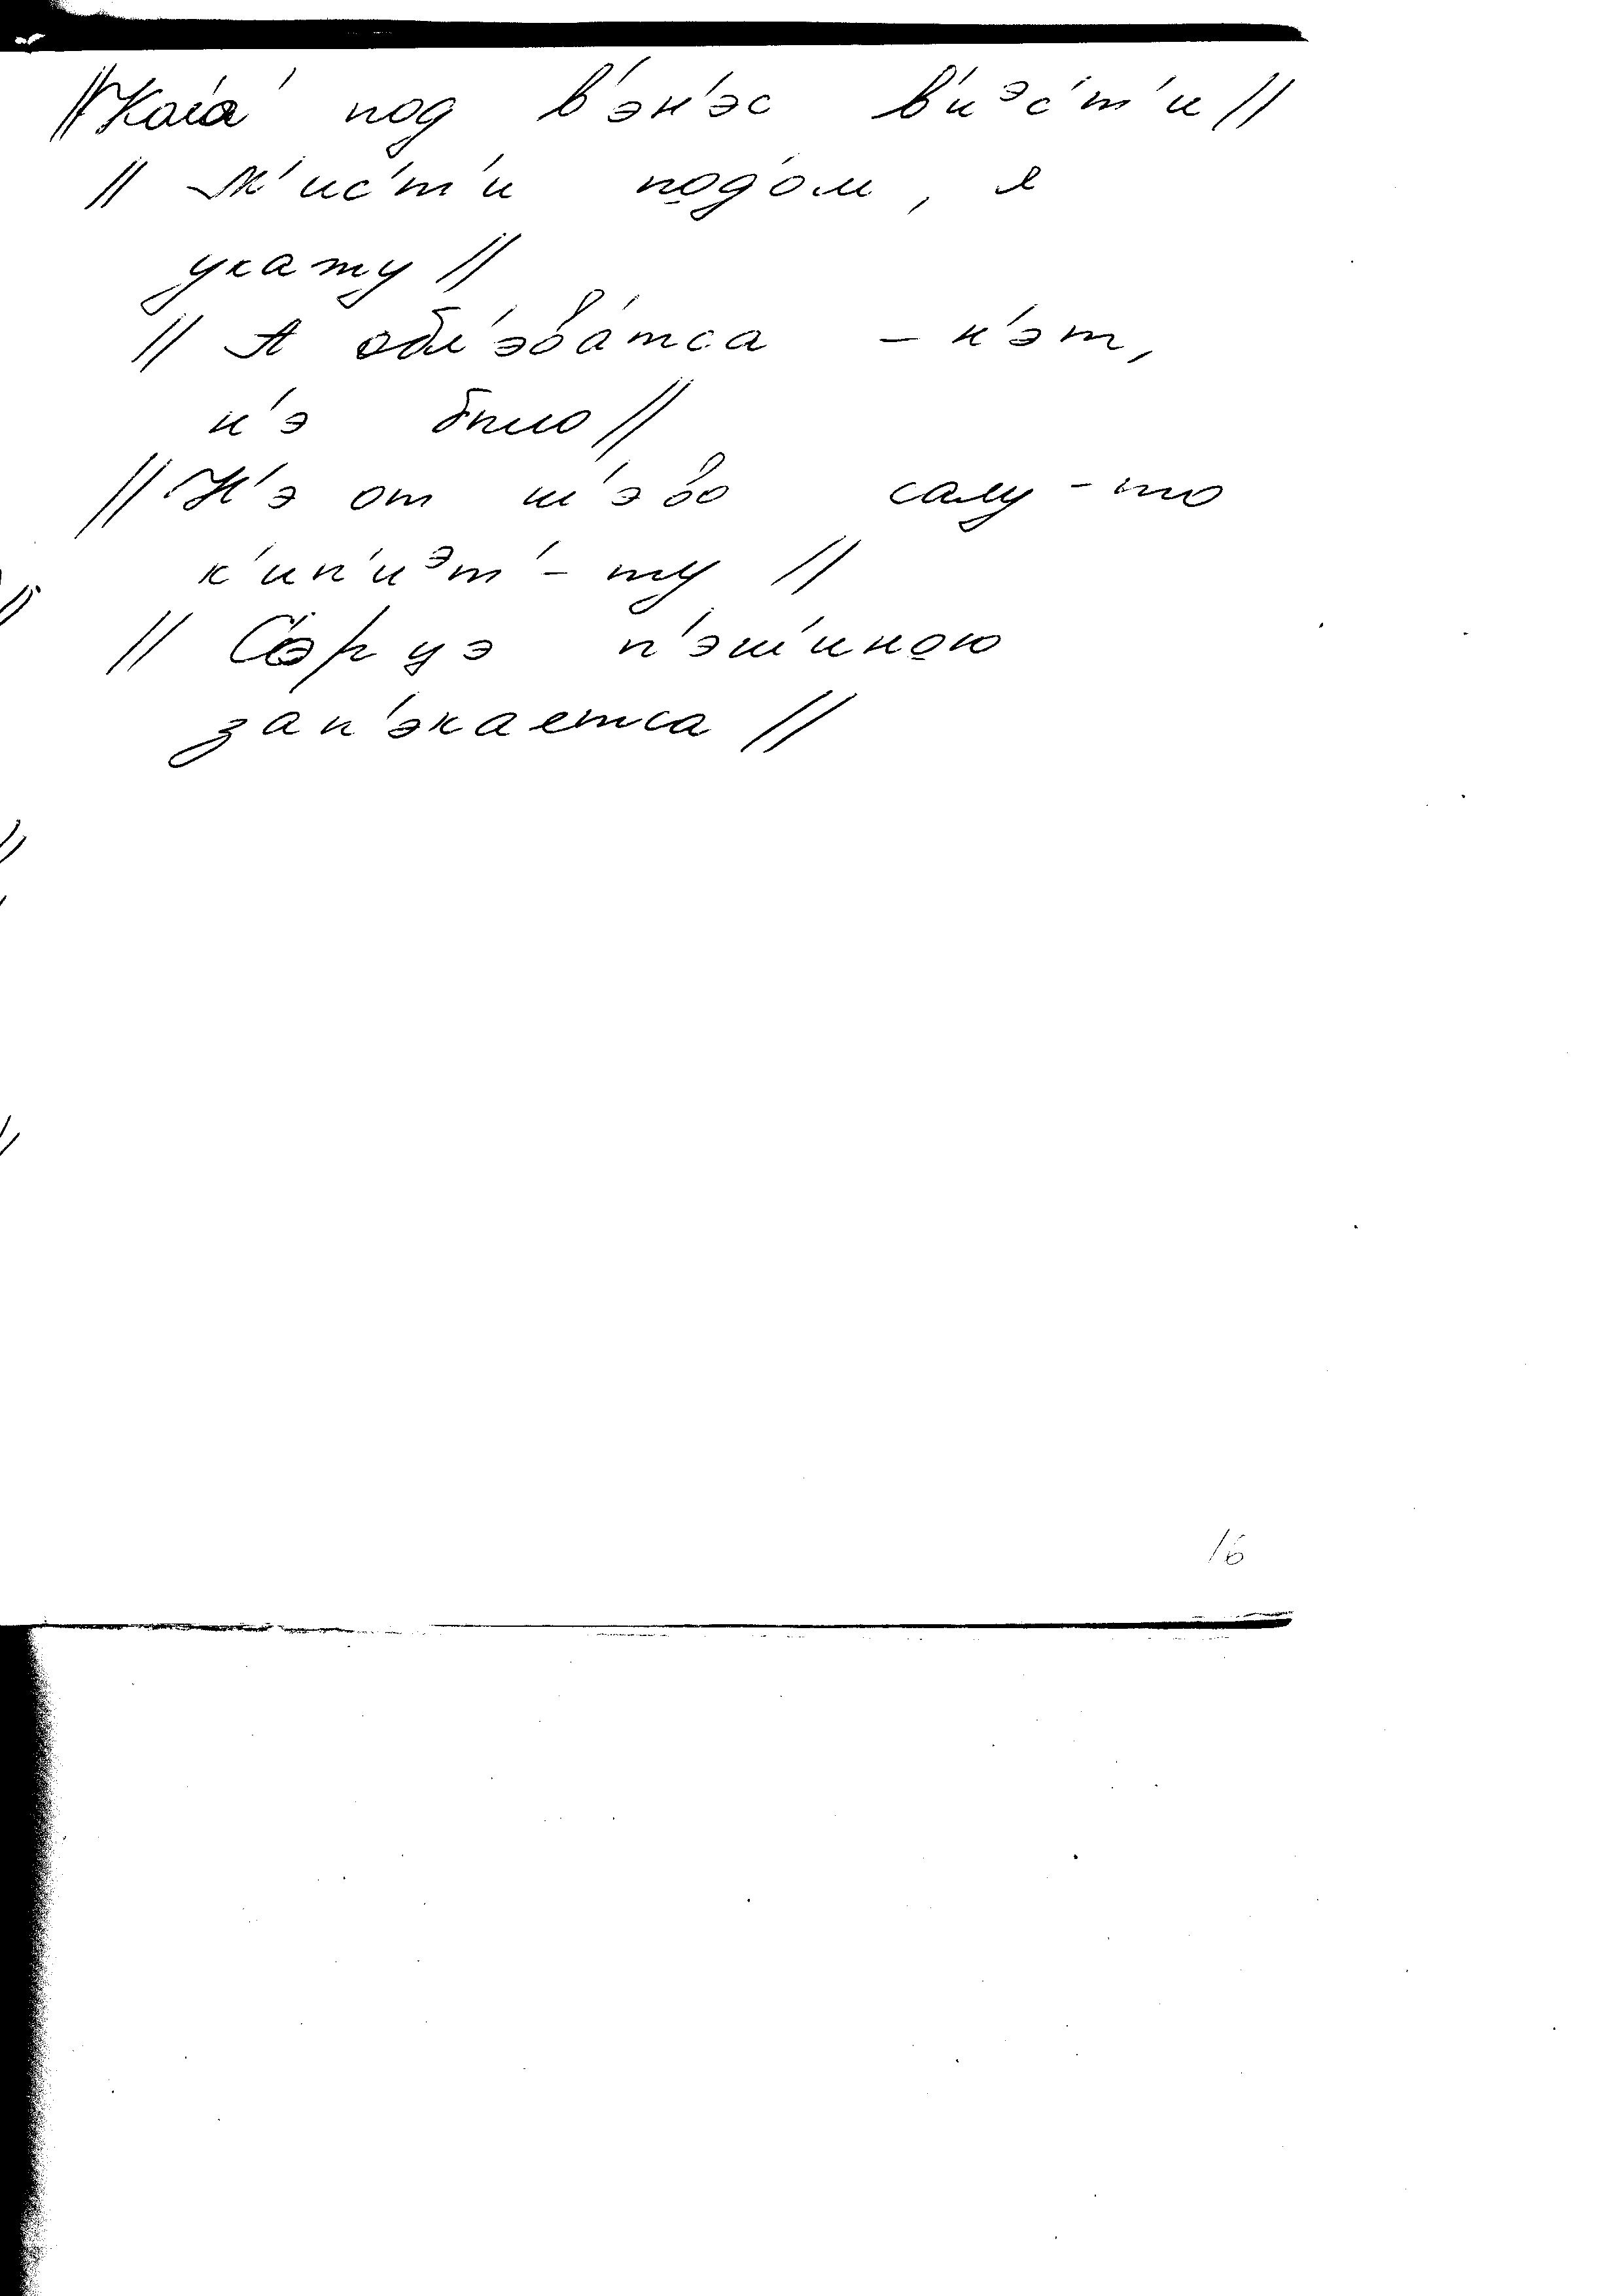 //Кага́ под в'эн'эс в'иᵊс'т'и//
// М'ис'т'и подом, я
укажу //
// А обл'эва́тса – н'эт,
н'э было//
//Н'э от ш'эво салу-то
к'ип'иᵊт'-ту //
// С'эрцэ п'эш'иною
зап'экаетса //
16